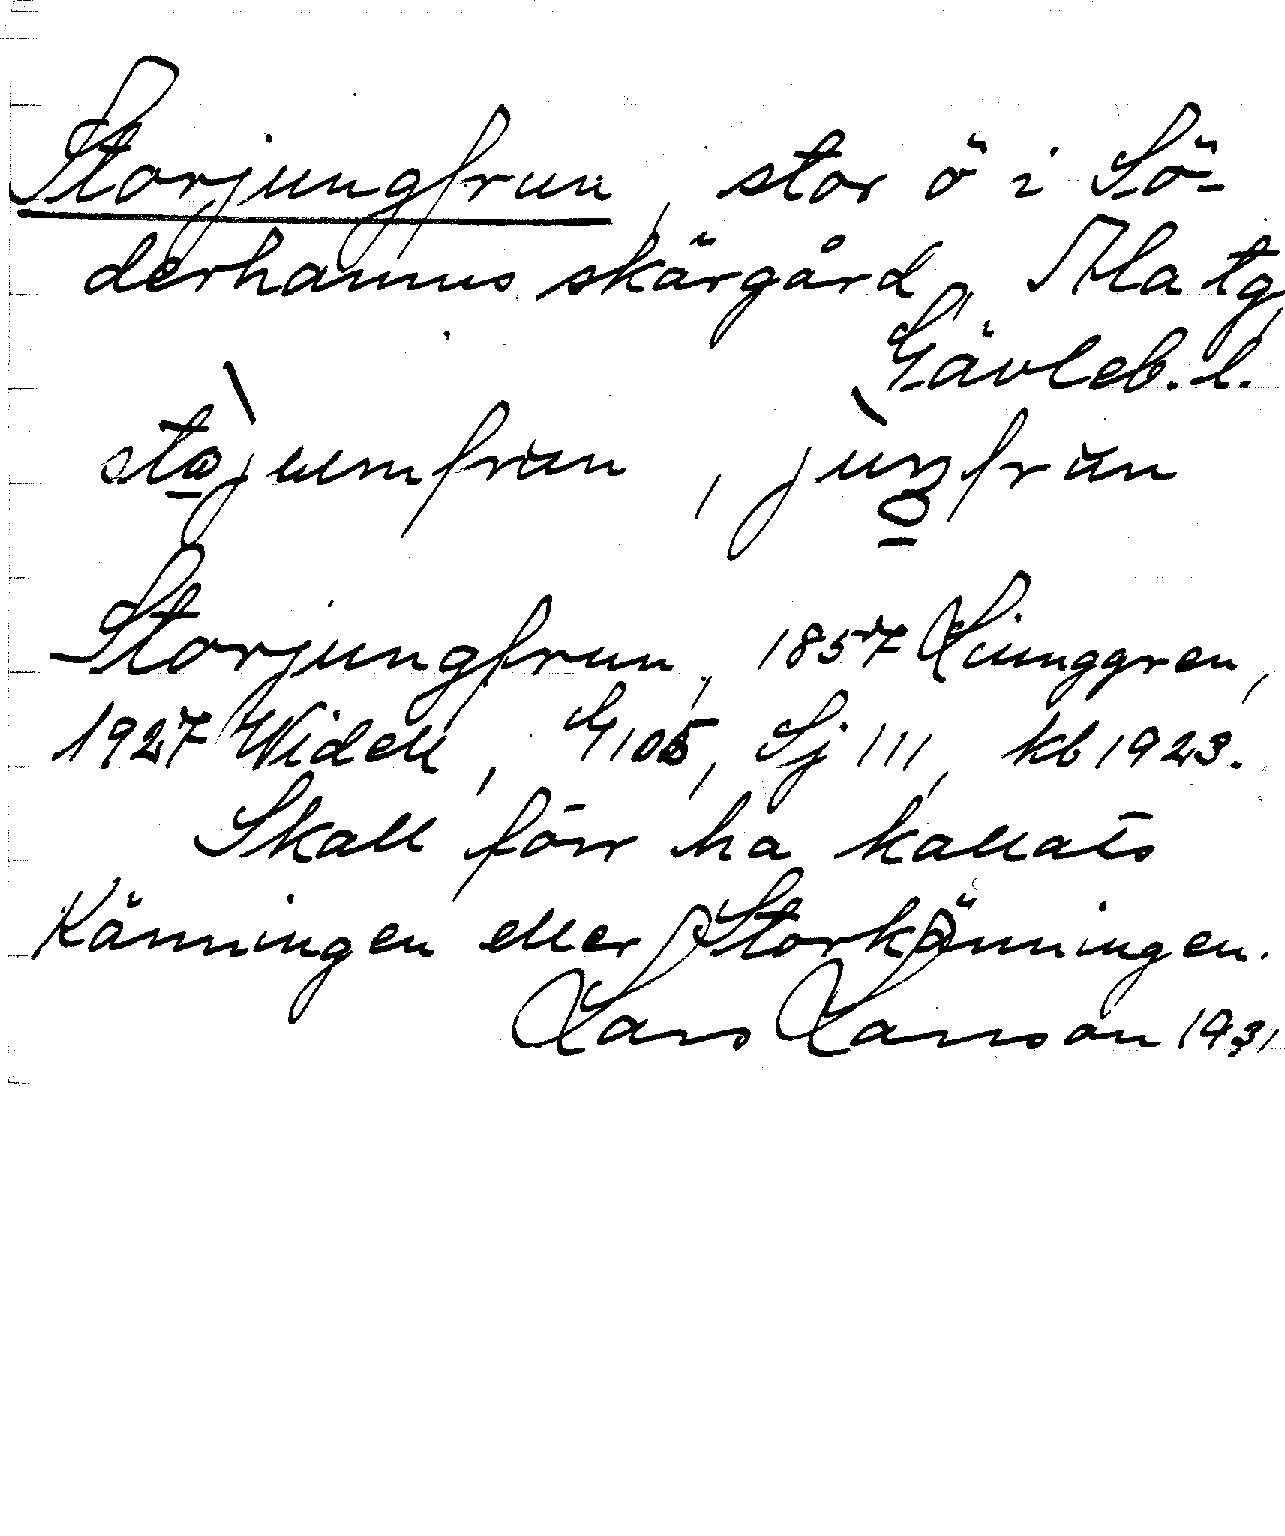 Storjungfrun, stor ö i Sö-
derhamns skärgård, Ala tg,
Gävleb. l.
Storjungfrun, 1857 Liunggren,
1927 Widell, G 105, Sj 111, kb 1923.
Skall förr ha kallats
Känningen eller Storkänningen.
Lars Larsson 1931